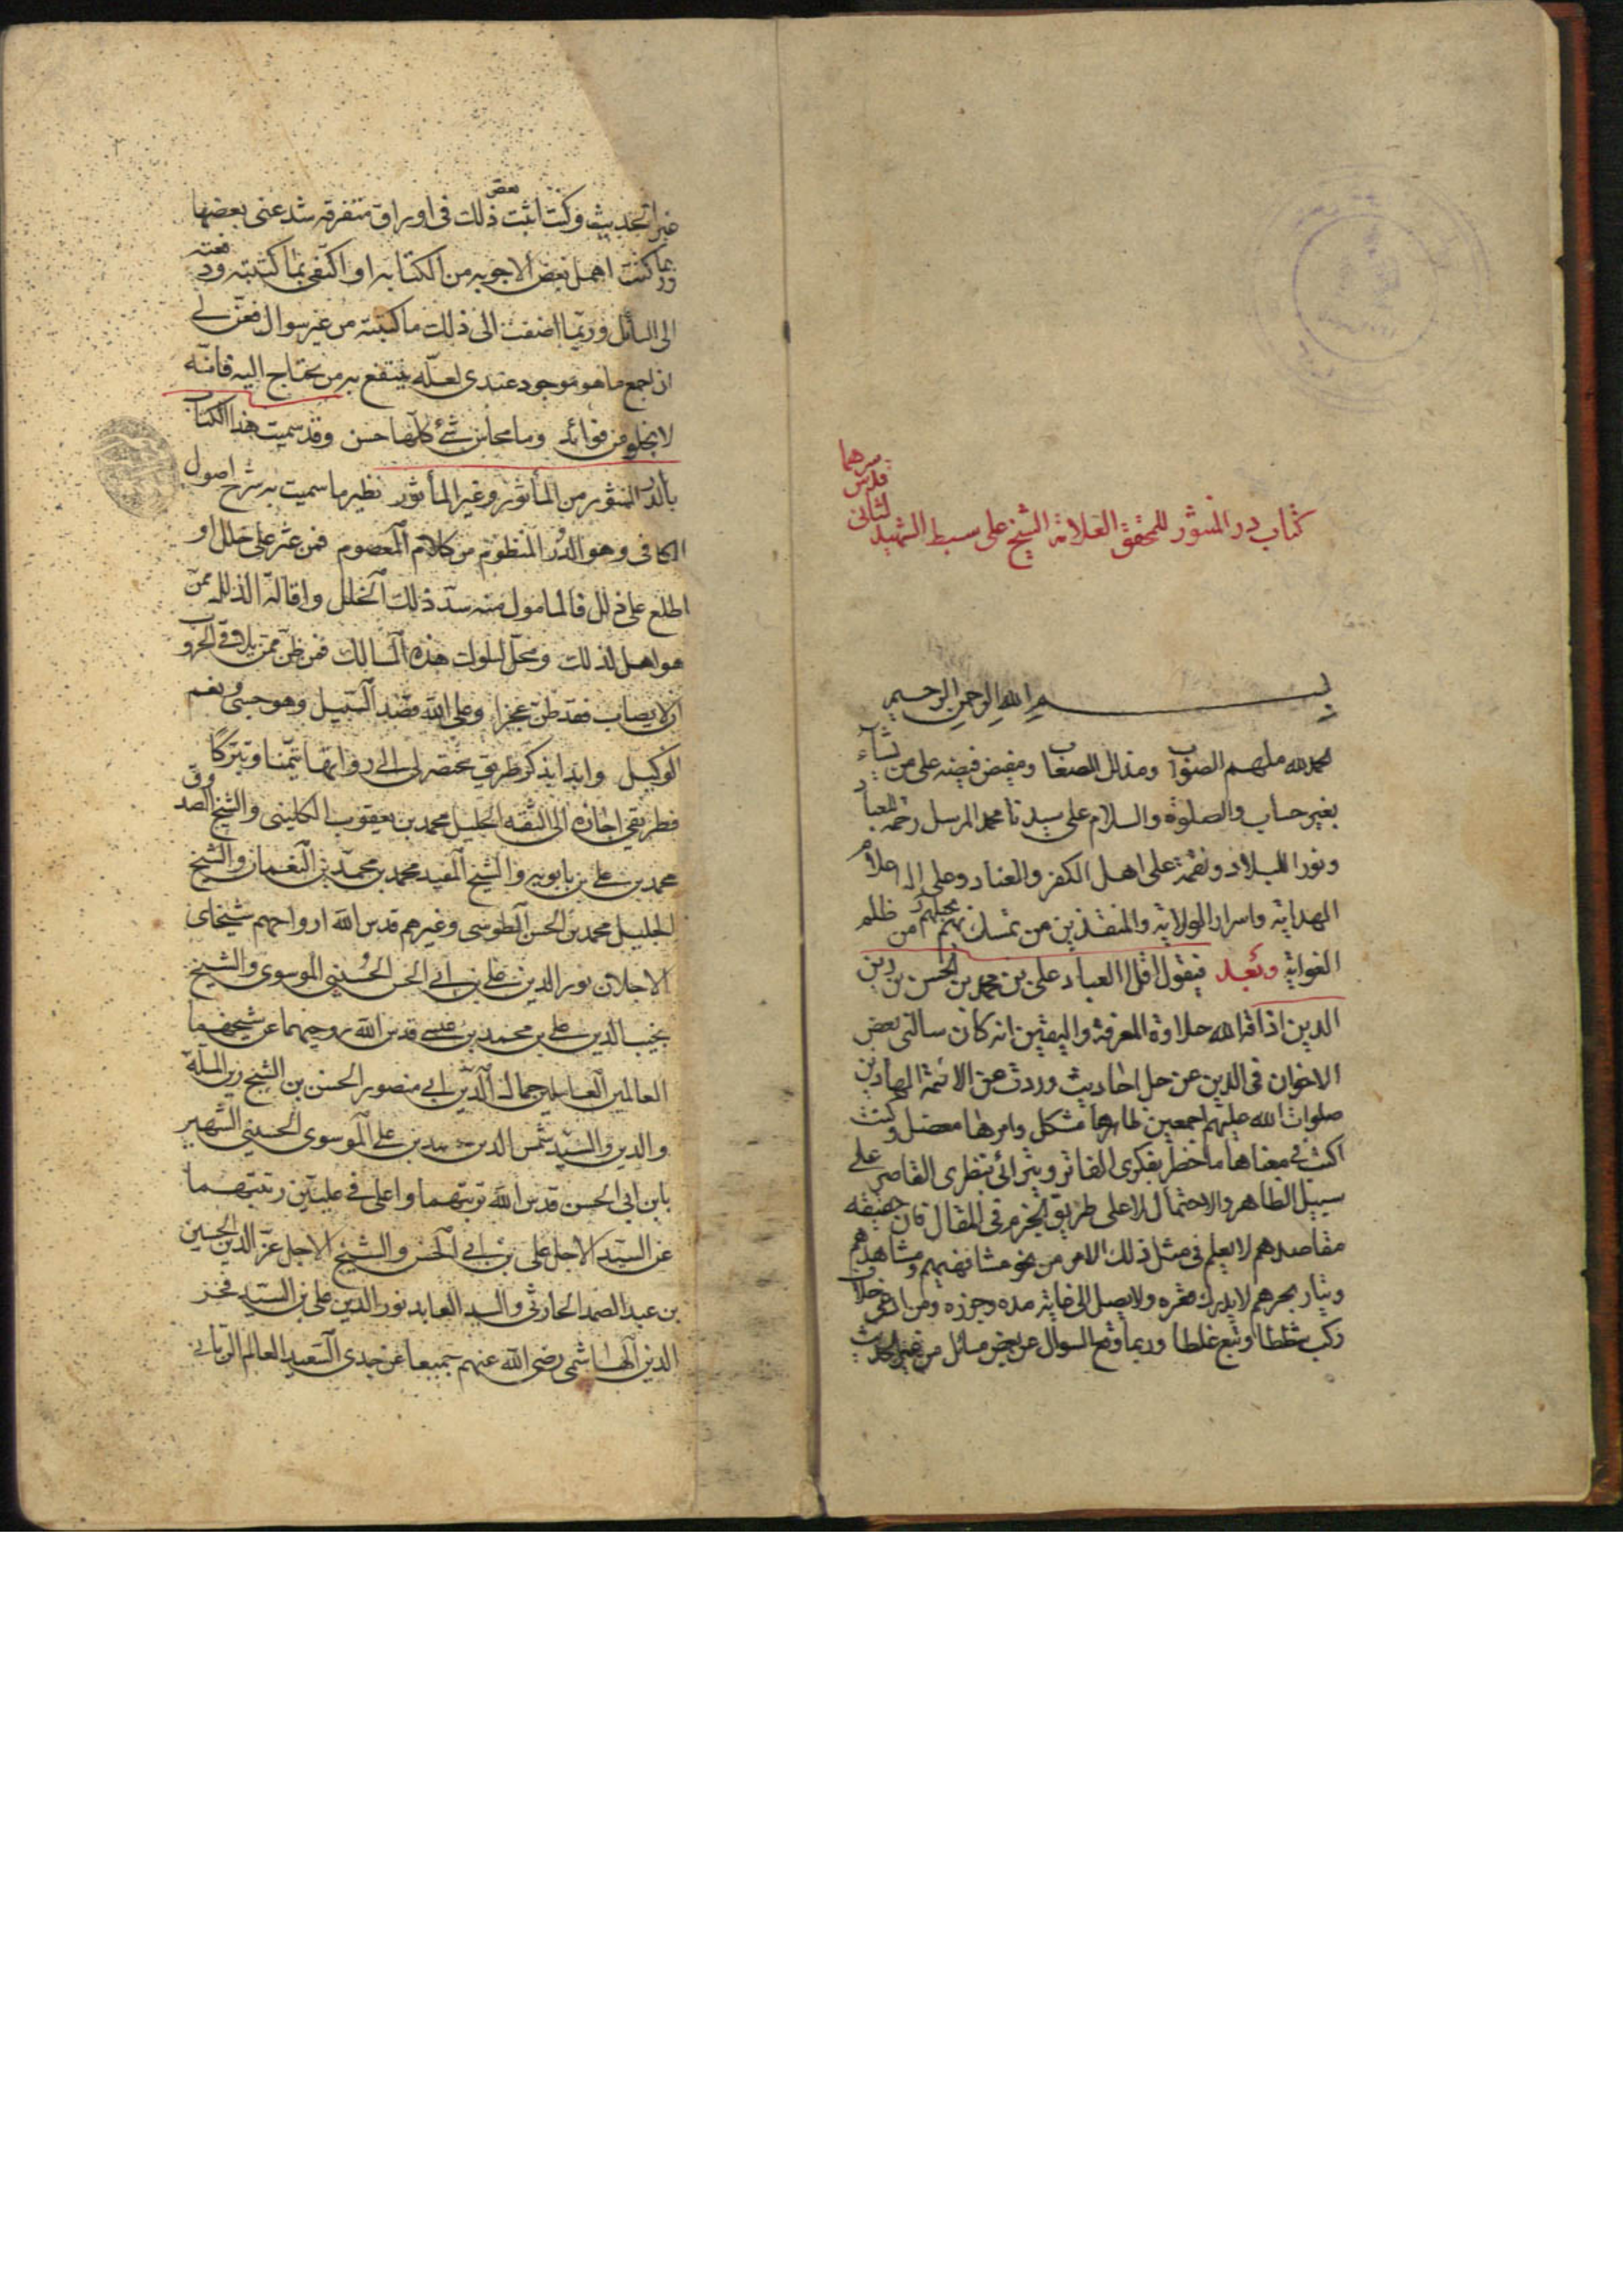 كتاب در المنثور للمحقق العلامة الشيخ على سبط الشهيد الثانى
قدس سرهما
بسم الله الرحمن الرحيم
الحمد لله ملهم الصواب ومذلل الصعاب ومفيض فيضه على من يشآء
بغير حساب والصلوة والسلام على سيدنا محمد المرسل رحمة للعباد
ونورا للبلاد ونقمة على اهل الكفر والعناد وعلى اله اعلام
الهداية واسرار الولاية والمنقذين من تمسك بهم من ظلم
الغواية وبعد فيقول اقل العباد على بن محمد بن الحسن بن زين
الدين اذاقه الله حلاوة المعرفة واليقين انه كان سالنى بعض
الاخوان فى الدين عن حل احاديث وردت عن الائمة الهادين
صلوات الله عليهم اجمعين ظاهرها مشكل وامرها معضل وكنت
اكتب فى معناها ما خطر بفكرى الفاتر ويترائى بنظرى القاصر على
سبيل الظاهر والاحتمال لا على طريق الجزم فى المقال فان حقيقة
مقاصدهم لا يعلم فى مثل ذلك الامر من نحو مشافهتهم ومشاهدهم
وتيار بحرهم لا يدرك قعره ولا يصل الى غاية مده وجزره ومن ادعى خلاف
ركب شططا وتبع غلطا وربما وقع السوال عن بعض مسائل من غير الحديث
غير الحديث وكنت اثبت بعض ذلك فى اوراق متفرقة شذ عنى بعضها
وربما كنت اهمل بعض الاجوبه من الكتابه او اكتفى بما كتبته ودفعته
الى السائل وربما اضفت الى ذلك ما كتبته من غير سوال فعن لى
ان اجمع ما هو موجود عندى لعله ينتفع به من يحتاج اليه فانه
لا يخلو من فوائد وما محاسن شئ كلها حسن وقد سميت هذا الكتاب
بالدر المنثور من المأثور وغير المأثور نظير ما سميت به شرح اصول
الكافى وهو الدر المنظوم من كلام المعصوم فمن عثر على خلل او
اطلع على ذلل فالمامول منه سد ذلك الخلل واقالة الذلل ممن
هو اهل لذلك ومحل لسلوك هذه المسالك فمن ظن ممن يلاقى الحروب
ان لا يصاب فقد ظن عجزا وعلى الله قصد السبيل وهو حسبى ونعم
الوكيل وابدا بذكر طريق مختصر لى الى رواتها تيمنا وتبركا
فطريقى اجازة الى الثقه الجليل محمد بن يعقوب الكلينى والشيخ الصدوق
محمد بن على بن بابويه والشيخ المفيد محمد بن محمد بن النعمان والشيخ
الجليل محمد بن الحسن الطوسى وغيرهم قدس الله ارواحهم شيخاى
الاجلان نور الدين على بن ابى الحسن الحسينى الموسوى والشيخ
نجيب الدين على بن محمد بن عيسى قدس الله روحيهما عن شيخيهما
العالمين العاملين جمال الدين ابى منصور الحسن بن الشيخ زين الملة
والدين والسيد شمس الدين محمد بن على الموسوى الحسينى الشهير
بابن ابى الحسن قدس الله تربتهما واعلى فى عليين رتبتهما
عن السيد الاجل على بن ابى الحسن والشيخ الاجل عز الدين الحسين
بن عبد الصمد الحارثى والسيد العابد نور الدين على بن السيد فخر
الدين الهاشمى رضى الله عنهم جميعا عن جدى السعيد العالم الربانى